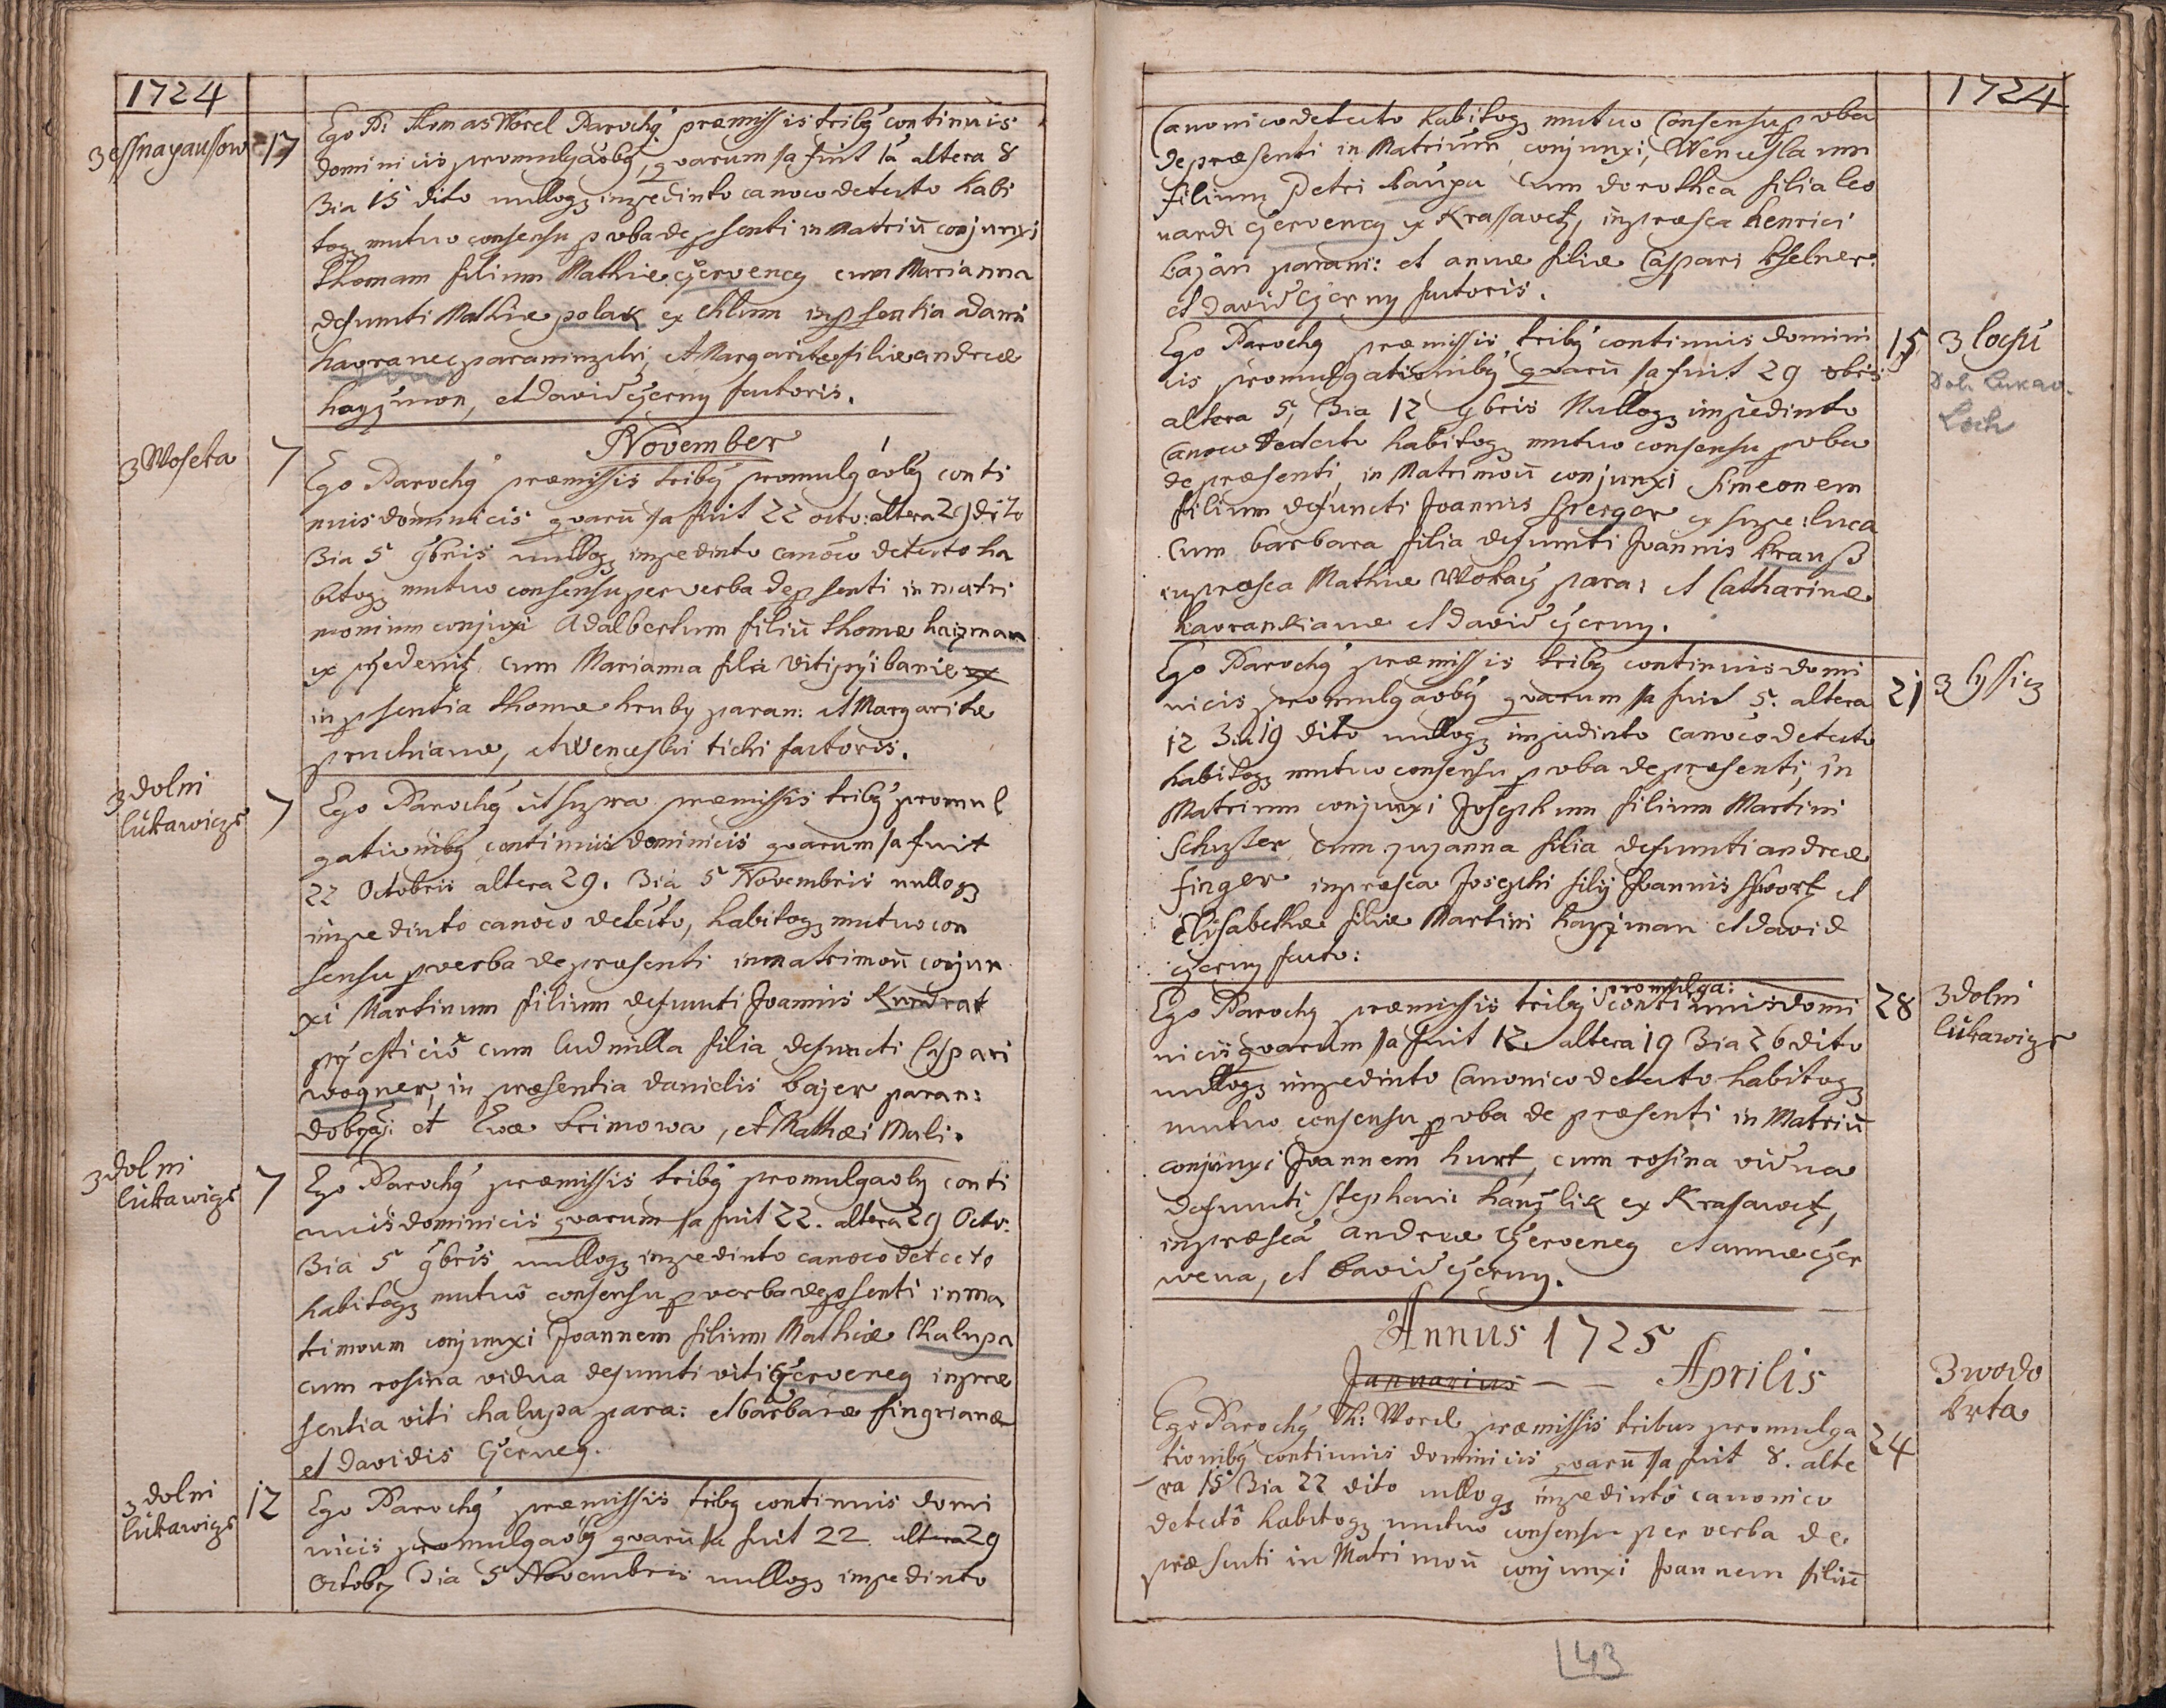 1724
3 essnayaussow 17
Ego P: Thomas Worel Parochý præmissis tribý continuis
dominicis promulgaobý, qvarum 1a fuit 1a altera 8
3ia 15 dito nulloqz impedinto canoco detecto habi
toqz mutuo consensu p vba de psenti in Matriu conjunxi
Thomam filium Mathiæ Czervency cum Marianna
defuncti Mathiæ polak ex Chlum in psentia Adami
havranec paranimphi, et Margarithæ filiæ andreæ
hayzmon, et david czerny factoris.
November
3 Woseka 7
Ego Parochý præmissis tribý promulgaobý conti
nuis dominicis qvaru 1a fuit 22 octo: altera 29 dito
3ia 5 9bris nulloqz impedinto canoco detecto ha
bitoqz mutuo consensu per verba de psenti in matri
monium conjuxi Adalbertum filiu thomæ hayzman
ex przedenitz cum Marianna filia Viti przibaniæ
in psentia thomæ hruby paran: et Margarithæ
pruchianæ, et Wenceslai tichi factoris.
3 dolni
lukawicze 7
Ego Parochý ut supra præmissis tribý promul
gationibý continuis dominicis qvarum 1a fuit
22 Octobris altera 29. 3ia 5 Novembris nulloqz
impedinto canoco detecto, habitoqz mutuo con
sensu p verba de præsenti in matrimou conjun
xi Martinum filium defuncti Joannis Kundrat
przesticio cum Ludmilla filia defuncti Caspari
wogner, in præsentia danielis bajer paran:
et Evæ krimowa, et Mathæi Mali.
3 dolni
lukawicze 7
Ego Parochý præmissis tribý promulgaobý conti
nuis dominicis qvarum 1a fuit 22. altera 29 Octo:
3ia 5 9bris nulloqz impedinto canoco detecto
habitoqz mutuo consensu p verba de psenti in ma
trimoum conjunxi Joannem filium Mathiæ Chalupa
cum rosina vidua defuncti viti Czerveney in præ
sentia viti chalupa para: et barbaræ fingrianæ
et davidis Czerney.
3 dolni
lukawicze 12
Ego Parochý præmissis tribý continuis domi
nicis promulgaobý qvaru 1a fuit 22 altera 29
Octobr 3ia 5 Novembris nulloqz impedinto
1724
Canonico detecto habitoqz mutuo Consensu p vba
de præsenti in Matrium conjunxi, Wenceslaum
filium Petri kaupa Cum dorothea filia leo
nardi Czervency ex Krassavetz, in præsca henrici
bajan parani: et annæ filiæ Caspari kselner:
et david Czerny factoris.
3 Lochu
Dol. Lukav.
Loch
15
Ego Parochý præmissis tribý continuis domini
cis promulgationibý qvaru 1a fuit 29 8bris
altera 5, 3ia 12 9bris Nulloqz impedinto
Canoco detecto habitoqz mutuo consensu p vba
de præsenti, in Matrimou conjunxi Simeonem
filium defuncti Joannis Sperger ex supe: luca
Cum barbara filia defuncti Joannis krauß
in præsca Mathiæ Wokacz para: et Catharinæ
havrankianæ et david czerny.
21 3 lyssicz
Ego Parochý præmissis tribý continuis domi
nicis promulgaobý qvarum 1a fuit 5. altera
12 3ia 19 dito nulloqz impedinto canoco detecto
habitoqz mutuo consensu p vba de præsenti, in
Matrium conjunxi Josephum filium Martini
Schuster, cum zuzanna filia defuncti andreæ
finger in præsca Josephi filij Joannis sswortz et
Elisabethæ filiæ Martini hayzman et david
czerny facto:
28 3 dolni
lukawicze
promulga:
Ego Parochý præmissis tribý continuis domi
nicis qvarum 1a fuit 12. altera 19 3ia 26 dito
nulloqz impedinto Canonico detecto habitoqz
mutuo consensu p vba de præsenti in Matriu
conjunxi Joannem hurt, cum rosina vidua
defuncti Stephani hanzlik ex Krasawetz,
in præsca andreæ Czerveney et annæ czer
wena, et david czerny.
Annus 1725
Januarius — — Aprilis
24 3 wodo
krta
Ego Parochý Th: Worel præmissis tribus promulga
tionibý continuis dominicis qvaru 1a fuit 8. alte
ra 15 3ia 22 dito nulloqz impedinto canonico
detecto habitoqz mutuo consensu per verba de
præsenti in Matrimou conjunxi Joannem filiu
143